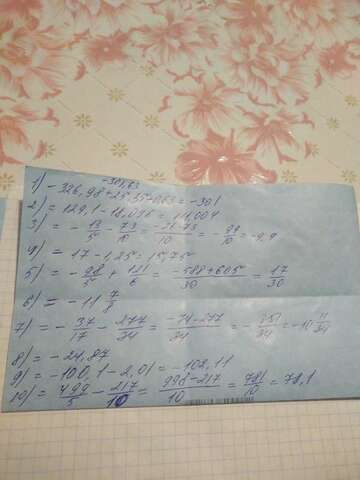 -301,63
1) -326,98+25,35+0,63=-301
2) = 129,1-18,096=111,004
3) = -13/5 - 73/10 = -26-73/10 = -99/10 = -9,9
4) = 17-1,25=15,75
5) = -98/5 + 121/6 = -588+605/30 = 17/30
6) = -11 7/8
7) = -37/17 - 277/34 = -74-277/34 = -351/34 = -10 11/34
8) = -24,87
9) = -100,1-2,01=-102,11
10) = 499/5 - 217/10 = 998-217/10 = 781/10 = 78,1